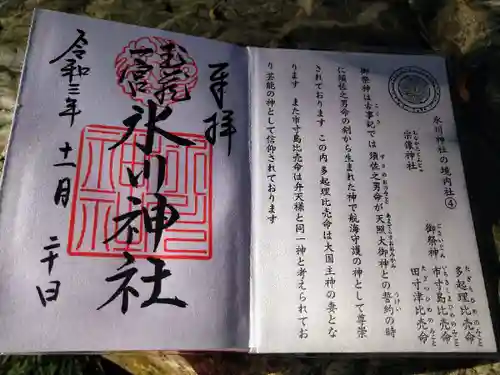 奉拝
武蔵
一宮
氷川神社
令和三年十一月二十日
氷川神社の境内社④
宗像神社
むなかたじんじゃ
御祭神
ごさいじん
多起理比売命
たぎりひめのみこと
市寸島比売命
いちきしまひめのみこと
田寸津比売命
たぎつひめのみこと
御祭神は古事記では須佐之男命が天照大御神との誓約の時
に須佐之男命の剣から生まれた神で航海守護の神として尊崇
されております この内多起理比売命は大国主神の妻とな
ります また市寸島比売命は弁天様と同一神と考えられてお
り芸能の神として信仰されております